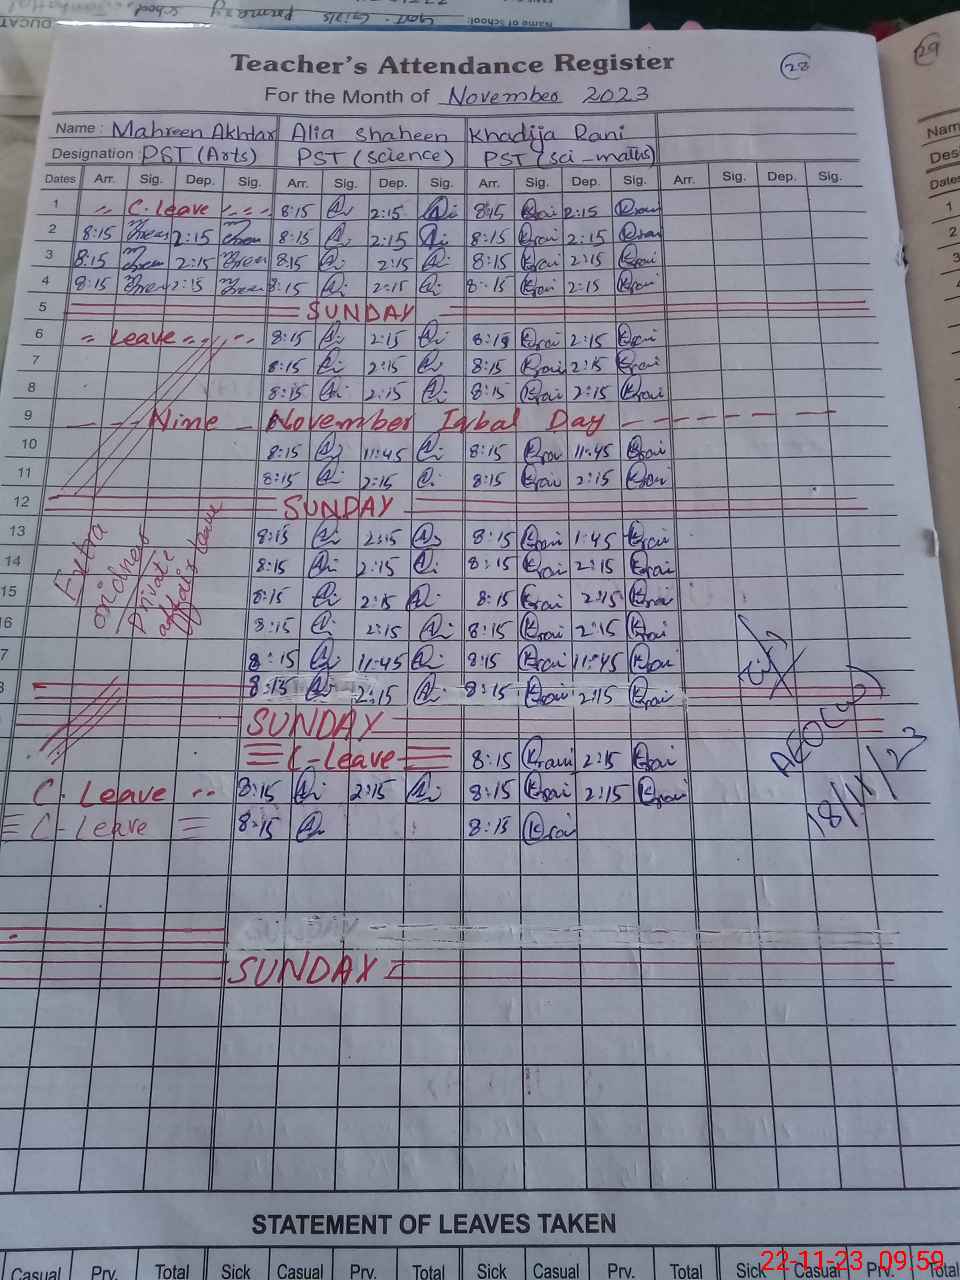 Name of school: Govt. Girls Primary school
Teacher's Attendance Register
28
29
For the Month of November 2023
Name : Mahreen Akhtar Alia Shaheen Khadija Rani
Designation : PST (Arts) PST (Science) PST (Sci-maths)
Dates Arr. Sig. Dep. Sig. Arr. Sig. Dep. Sig. Arr. Sig. Dep. Sig. Arr. Sig. Dep. Sig.
1 C. Leave 8:15 2:15 8:15 2:15
2 8:15 2:15 8:15 2:15 8:15 2:15
3 8:15 2:15 8:15 2:15 8:15 2:15
4 8:15 2:15 8:15 2:15 8:15 2:15
5 SUNDAY
6 Leave 8:15 2:15 8:15 2:15
7 8:15 2:15 8:15 2:15
8 8:15 2:15 8:15 2:15
9 Nine November Iqbal Day
10 8:15 11:45 8:15 11:45
11 8:15 2:15 8:15 2:15
12 SUNDAY
13 8:15 2:15 8:15 1:45
14 8:15 2:15 8:15 2:15
15 8:15 2:15 8:15 2:15
16 8:15 2:15 8:15 2:15
7 8:15 11:45 8:15 11:45
8:15 2:15 8:15 2:15
Extra
Private
affair leave
SUNDAY
C-Leave 8:15 2:15
C. Leave 8:15 2:15 8:15 2:15
C-Leave 8:15 8:15
AEO
18/11/23
SUNDAY
STATEMENT OF LEAVES TAKEN
Casual Prv. Total Sick Casual Prv. Total Sick Casual Prv. Total Sick Casual Prv. Total
22-11-23 09:59
Nam
Des
Dates
1
2
3
4